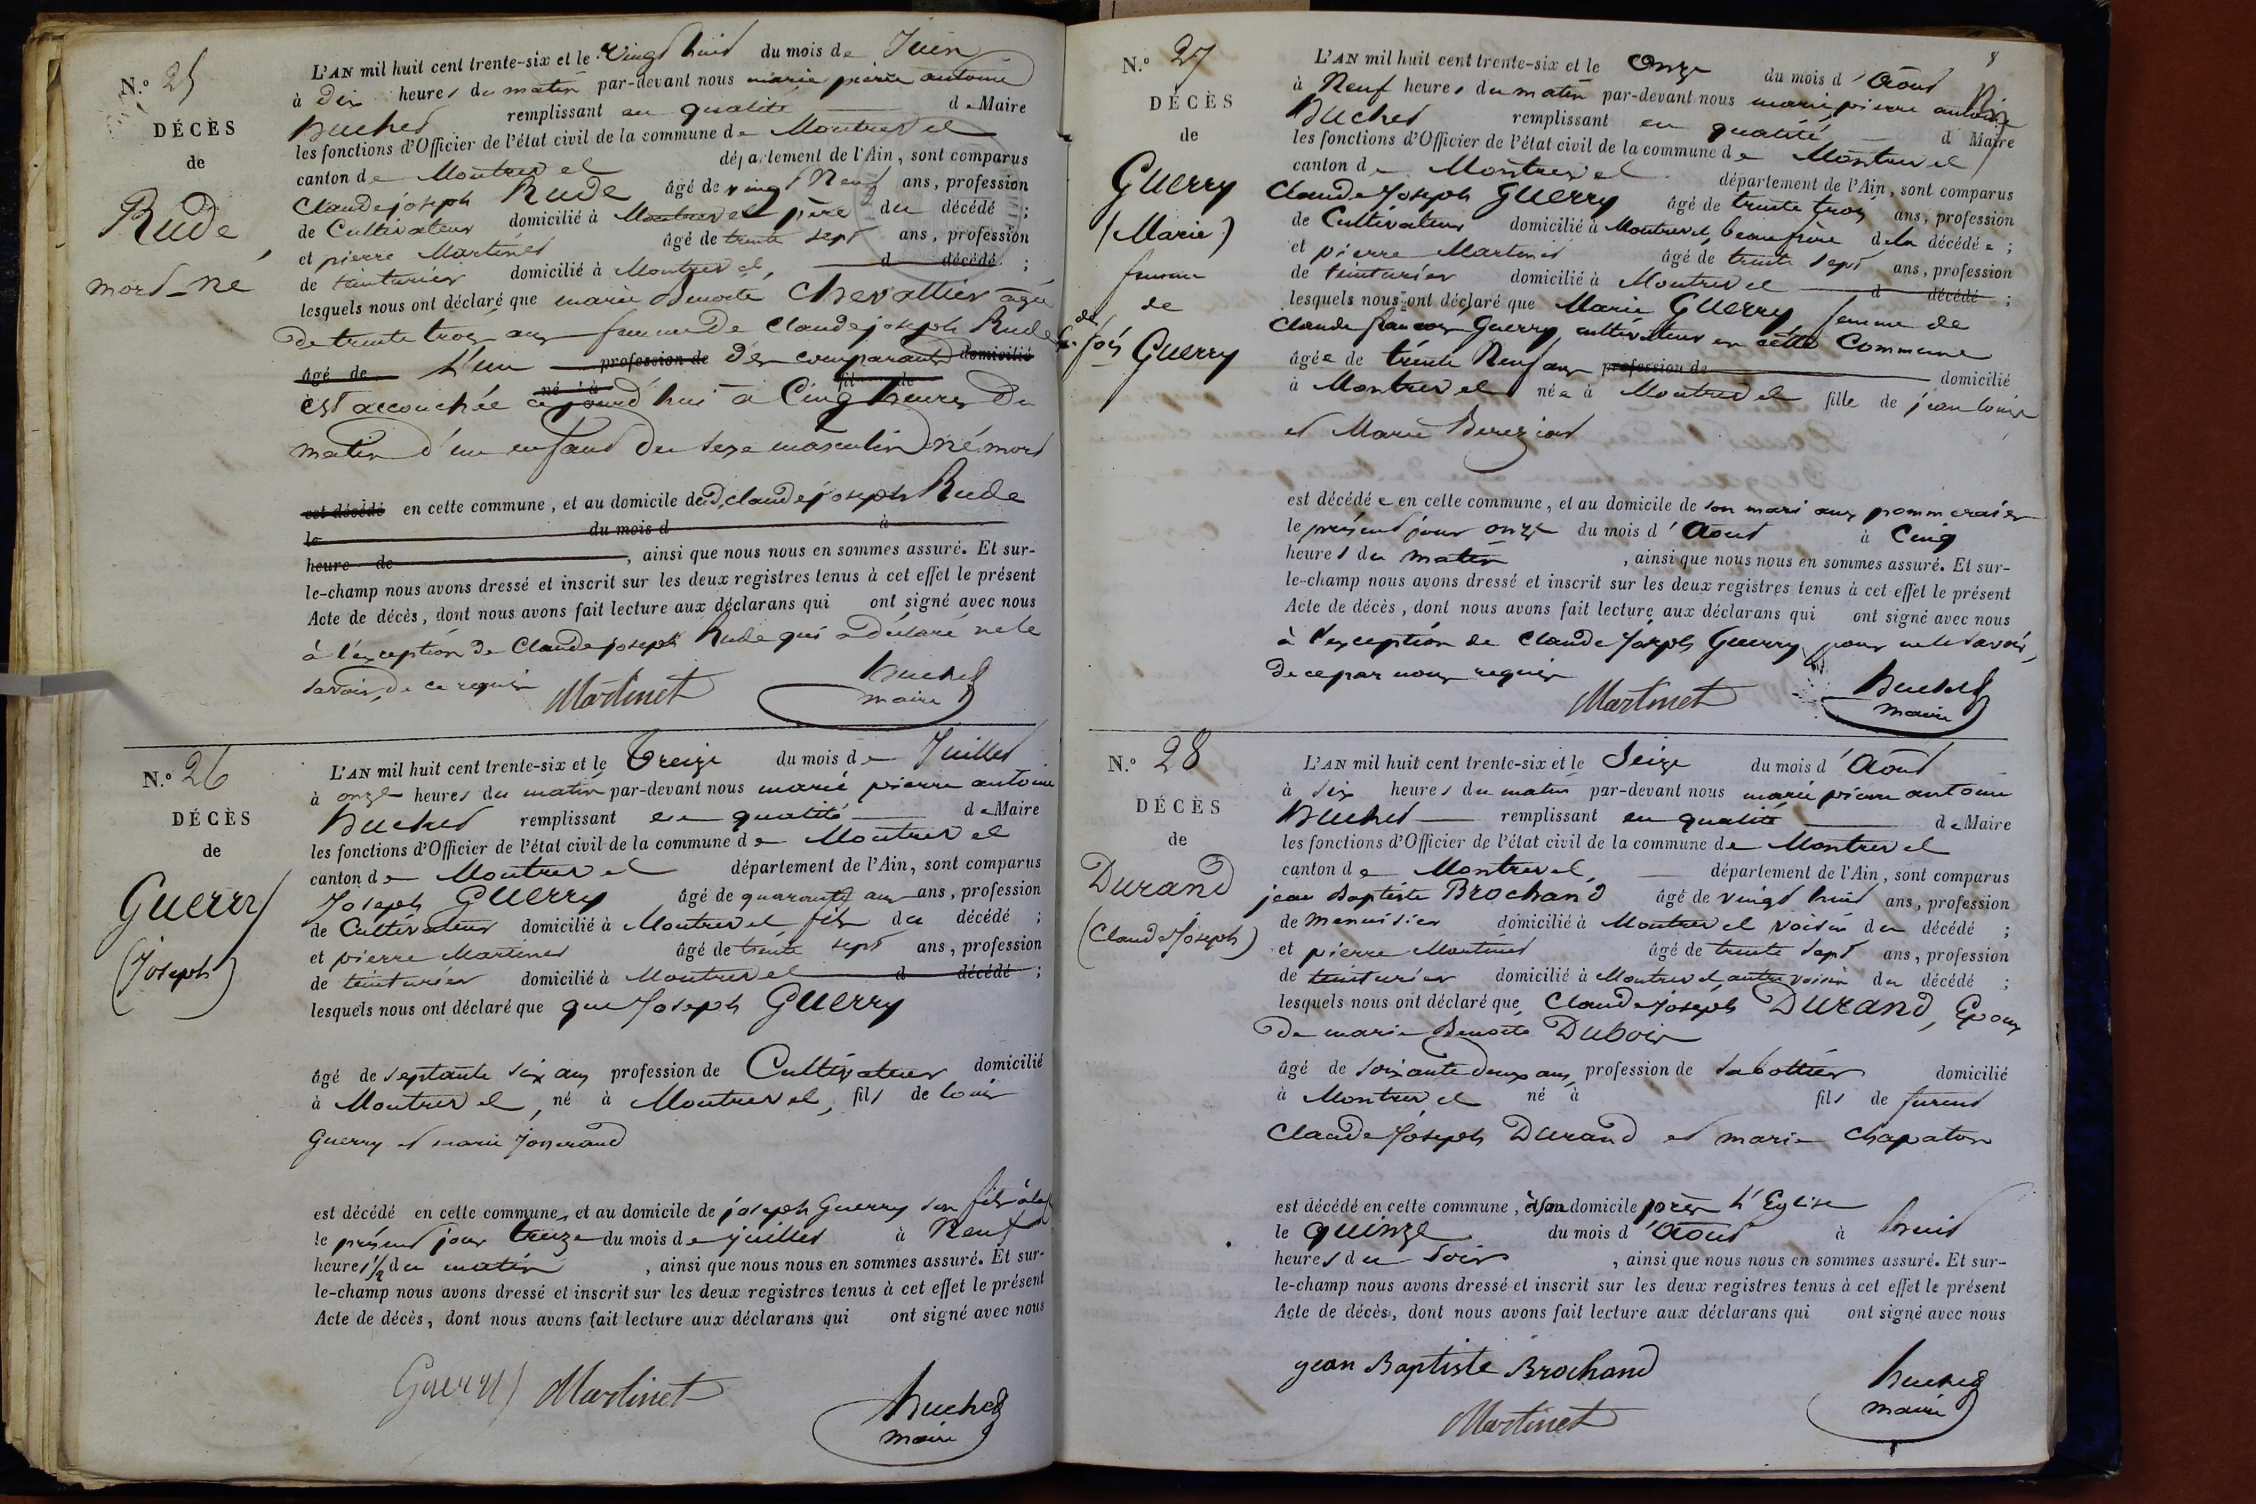 N.º 25
DÉCÈS
de
Rude
mort-né
L'AN mil huit cent trente-six et le vingt huit du mois de Juin
à dix heures du matin par-devant nous marie pierre antoine
Buchet remplissant en qualité de Maire
les fonctions d'Officier de l'état civil de la commune de Montrevel
canton de Montrevel département de l'Ain, sont comparus
Claude joseph Rude âgé de vingt Neuf ans, profession
de Cultivateur domicilié à Montrevel père du décédé ;
et pierre Martinet âgé de trente sept ans, profession
de teinturier domicilié à Montrevel, d décédé ;
lesquels nous ont déclaré que marie Benoite Chevallier âgée
de trente trois ans femme de Claude joseph Rude
âgé de L'un profession de des comparants domicilié
né à fil de
est accouchée ce jourd'hui à Cinq heures du
matin d'un enfant du sexe masculin né mort
est décédé en cette commune, et au domicile dud. claude joseph Rude
le du mois d à
heure de , ainsi que nous nous en sommes assuré. Et sur-
le-champ nous avons dressé et inscrit sur les deux registres tenus à cet effet le présent
Acte de décès, dont nous avons fait lecture aux déclarans qui ont signé avec nous
à l'exception de Claude joseph Rude qui a déclaré ne le
savoir, de ce requis Martinet Buchet
maire
N.º 26
DÉCÈS
de
Guerry
(Joseph)
L'AN mil huit cent trente-six et le Treize du mois de Juillet
à onze heures du matin par-devant nous marie pierre antoine
Buchet remplissant en qualité de Maire
les fonctions d'Officier de l'état civil de la commune de Montrevel
canton de Montrevel département de l'Ain, sont comparus
Joseph Guerry âgé de quarante ans ans, profession
de Cultivateur domicilié à Montrevel fils du décédé ;
et pierre Martinet âgé de trente sept ans, profession
de teinturier domicilié à Montrevel d décédé ;
lesquels nous ont déclaré que que Joseph Guerry
âgé de septante six ans profession de Cultivateur domicilié
à Montrevel, né à Montrevel, fils de louis
Guerry et marie
est décédé en cette commune, et au domicile de joseph Guerry son fils
le présent jour treize du mois de juillet à Neuf
heures 1/2 du matin , ainsi que nous nous en sommes assuré. Et sur-
le-champ nous avons dressé et inscrit sur les deux registres tenus à cet effet le présent
Acte de décès, dont nous avons fait lecture aux déclarans qui ont signé avec nous
Guerry Martinet Buchet
maire
8
N.º 27
DÉCÈS
de
Guerry
(Marie)
femme
de
Guerry
L'AN mil huit cent trente-six et le Onze du mois d'Aout
à Neuf heures du matin par-devant nous marie pierre antoine
Buchet remplissant en qualité d Maire
les fonctions d'Officier de l'état civil de la commune de Montrevel
canton de Montrevel département de l'Ain, sont comparus
Claude Joseph Guerry âgé de trente trois ans, profession
de Cultivateur domicilié à Montrevel, beau frère de la décédée ;
et pierre Martinet âgé de trente sept ans, profession
de teinturier domicilié à Montrevel d décédé ;
lesquels nous ont déclaré que Marie Guerry femme de
Claude francois Guerry cultivateur en cette Commune
âgée de trente Neuf ans profession de domicilié
à Montrevel née à Montrevel fille de jean louis
et Marie Bereziat
est décédée en cette commune, et au domicile de son mari aux pommeraies
le présent jour onze du mois d'Aout à Cinq
heures du matin , ainsi que nous nous en sommes assuré. Et sur-
le-champ nous avons dressé et inscrit sur les deux registres tenus à cet effet le présent
Acte de décès, dont nous avons fait lecture aux déclarans qui ont signé avec nous
à l'exception de Claude Joseph Guerry pour ne le savoir,
de ce par nous requis
Martinet Buchet
maire
N.º 28
DÉCÈS
de
Durand
(Claude Joseph)
L'AN mil huit cent trente-six et le Seize du mois d'Aout
à six heures du matin par-devant nous marie pierre antoine
Buchet remplissant en qualité de Maire
les fonctions d'Officier de l'état civil de la commune de Montrevel
canton de Montrevel, département de l'Ain, sont comparus
jean Baptiste Brochand âgé de vingt huit ans, profession
de menuisier domicilié à Montrevel voisin du décédé ;
et pierre Martinet âgé de trente sept ans, profession
de teinturier domicilié à Montrevel, autre voisin du décédé ;
lesquels nous ont déclaré que Claude Joseph Durand, Epoux
de marie Benoite Dubois
âgé de soixante deux ans, profession de sabottier domicilié
à Montrevel né à fils de furent
Claude Joseph Durand et marie Chapaton
est décédé en cette commune, et son domicile près L'Eglise
le quinze du mois d'Aout à huit
heures du soir , ainsi que nous nous en sommes assuré. Et sur-
le-champ nous avons dressé et inscrit sur les deux registres tenus à cet effet le présent
Acte de décès, dont nous avons fait lecture aux déclarans qui ont signé avec nous
jean Baptiste Brochand Buchet
maire
Martinet